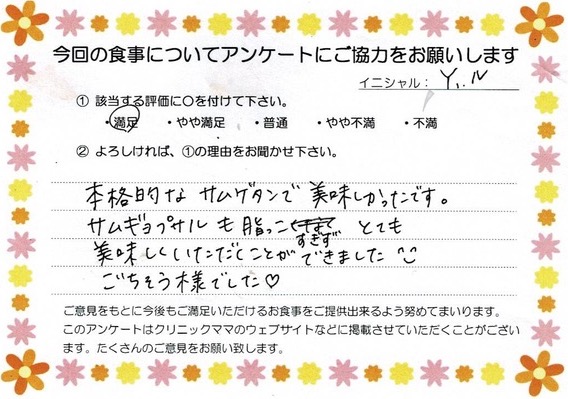 今回の食事についてアンケートにご協力をお願いします
イニシャル： Y.N
① 該当する評価に○を付けて下さい。
・満足 ・やや満足 ・普通 ・やや不満 ・不満
② よろしければ、①の理由をお聞かせ下さい。
本格的な サムゲタンで 美味しかったです。
サムギョプサル も 脂っこ すぎず とても
美味しくいただくことが できました ^^
ごちそう様でした♡
ご意見をもとに今後もご満足いただけるお食事をご提供出来るよう努めてまいります。
このアンケートはクリニックママのウェブサイトなどに掲載させていただくことがござい
ます。たくさんのご意見をお願い致します。